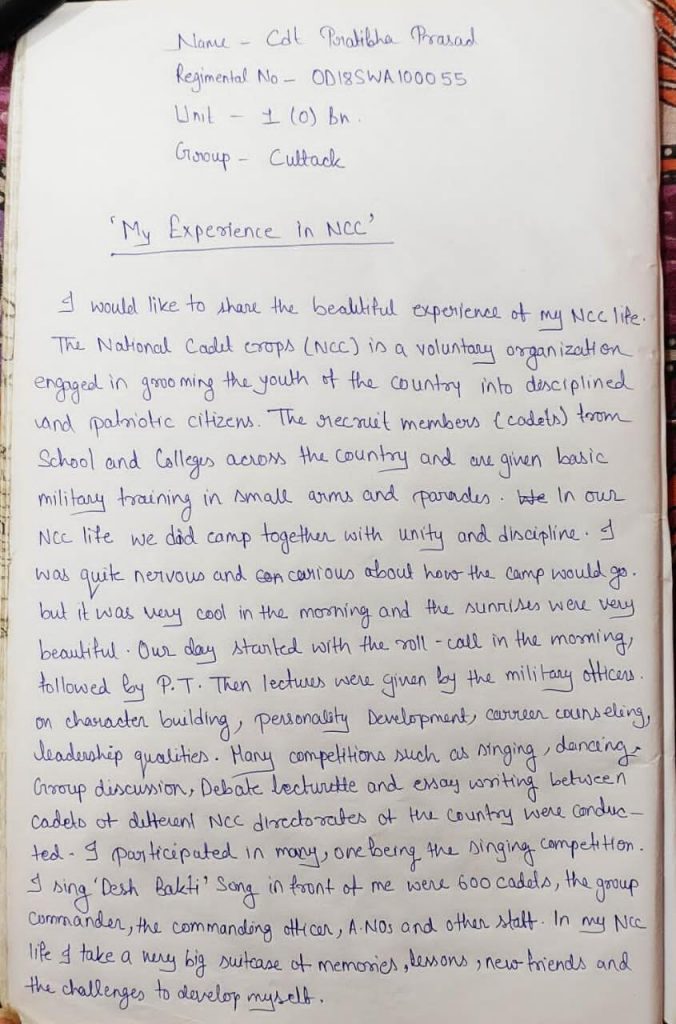 Name - Cdt Pratibha Prasad
Regimental No - OD18SWA100055
Unit - 1 (O) Bn.
Group - Cuttack
'My Experience in NCC'
I would like to share the beautiful experience of my NCC life.
The National Cadet crops (NCC) is a voluntary organization
engaged in grooming the youth of the country into desciplined
and patriotic citizens. The recruit members (cadets) from
School and Colleges across the country and are given basic
military training in small arms and parades. We In our
NCC life we did camp together with unity and discipline. I
was quite nervous and con carious about how the camp would go.
but it was very cool in the morning and the sunrises were very
beautiful. Our day started with the roll-call in the morning,
followed by P.T. Then lectures were given by the military officers.
on character building, personality Development, carreer counseling,
leadership qualities. Many competitions such as singing, dancing.
Group discussion, Debate lecturette and essay writing between
cadets of different NCC directorates of the country were conduc-
ted. I participated in many, one being the singing competition.
I sing 'Desh Bakti' Song in front of me were 600 cadets, the group
commander, the commanding officer, A.NOs and other staff. In my NCC
life I take a very big suitcase of memories, lessons, new friends and
the challenges to develop myself.